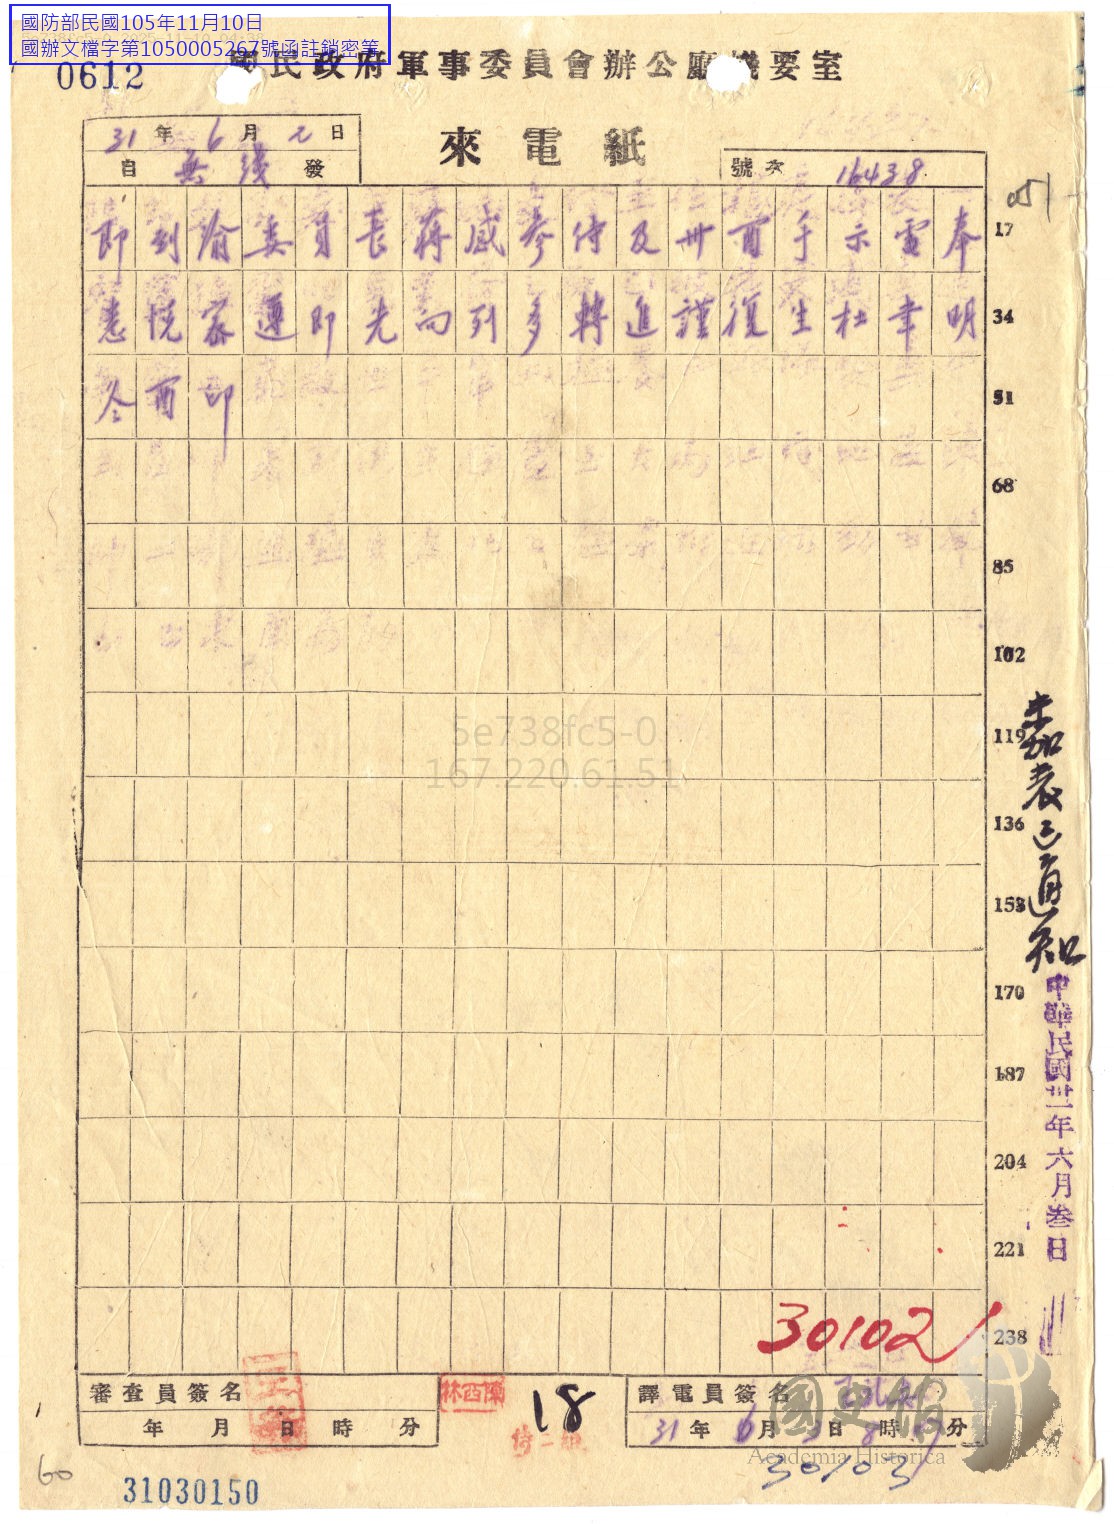 國防部民國105年11月10日
國辦文檔字第1050005267號函註銷密等
0612
國民政府軍事委員會辦公廳機要室
來電紙
31年6月2日
自無綫發
號次 16438
即到渝委員長蔣感參侍及卅酉手示電奉 17
悉悅家遵即先向列多轉進謹復生杜聿明 34
冬酉印 51
68
85
102
119
136
153
170
187
204
221
238
表已通知
中華民國卅一年六月叁日
5e738fc5-0
167.220.61.51
30102
審查員簽名
年 月 日 時 分
陳西林
18
侍二組
譯電員簽名
31年6月3日8時 分
國史館
Academia Historica
30103
60
31030150